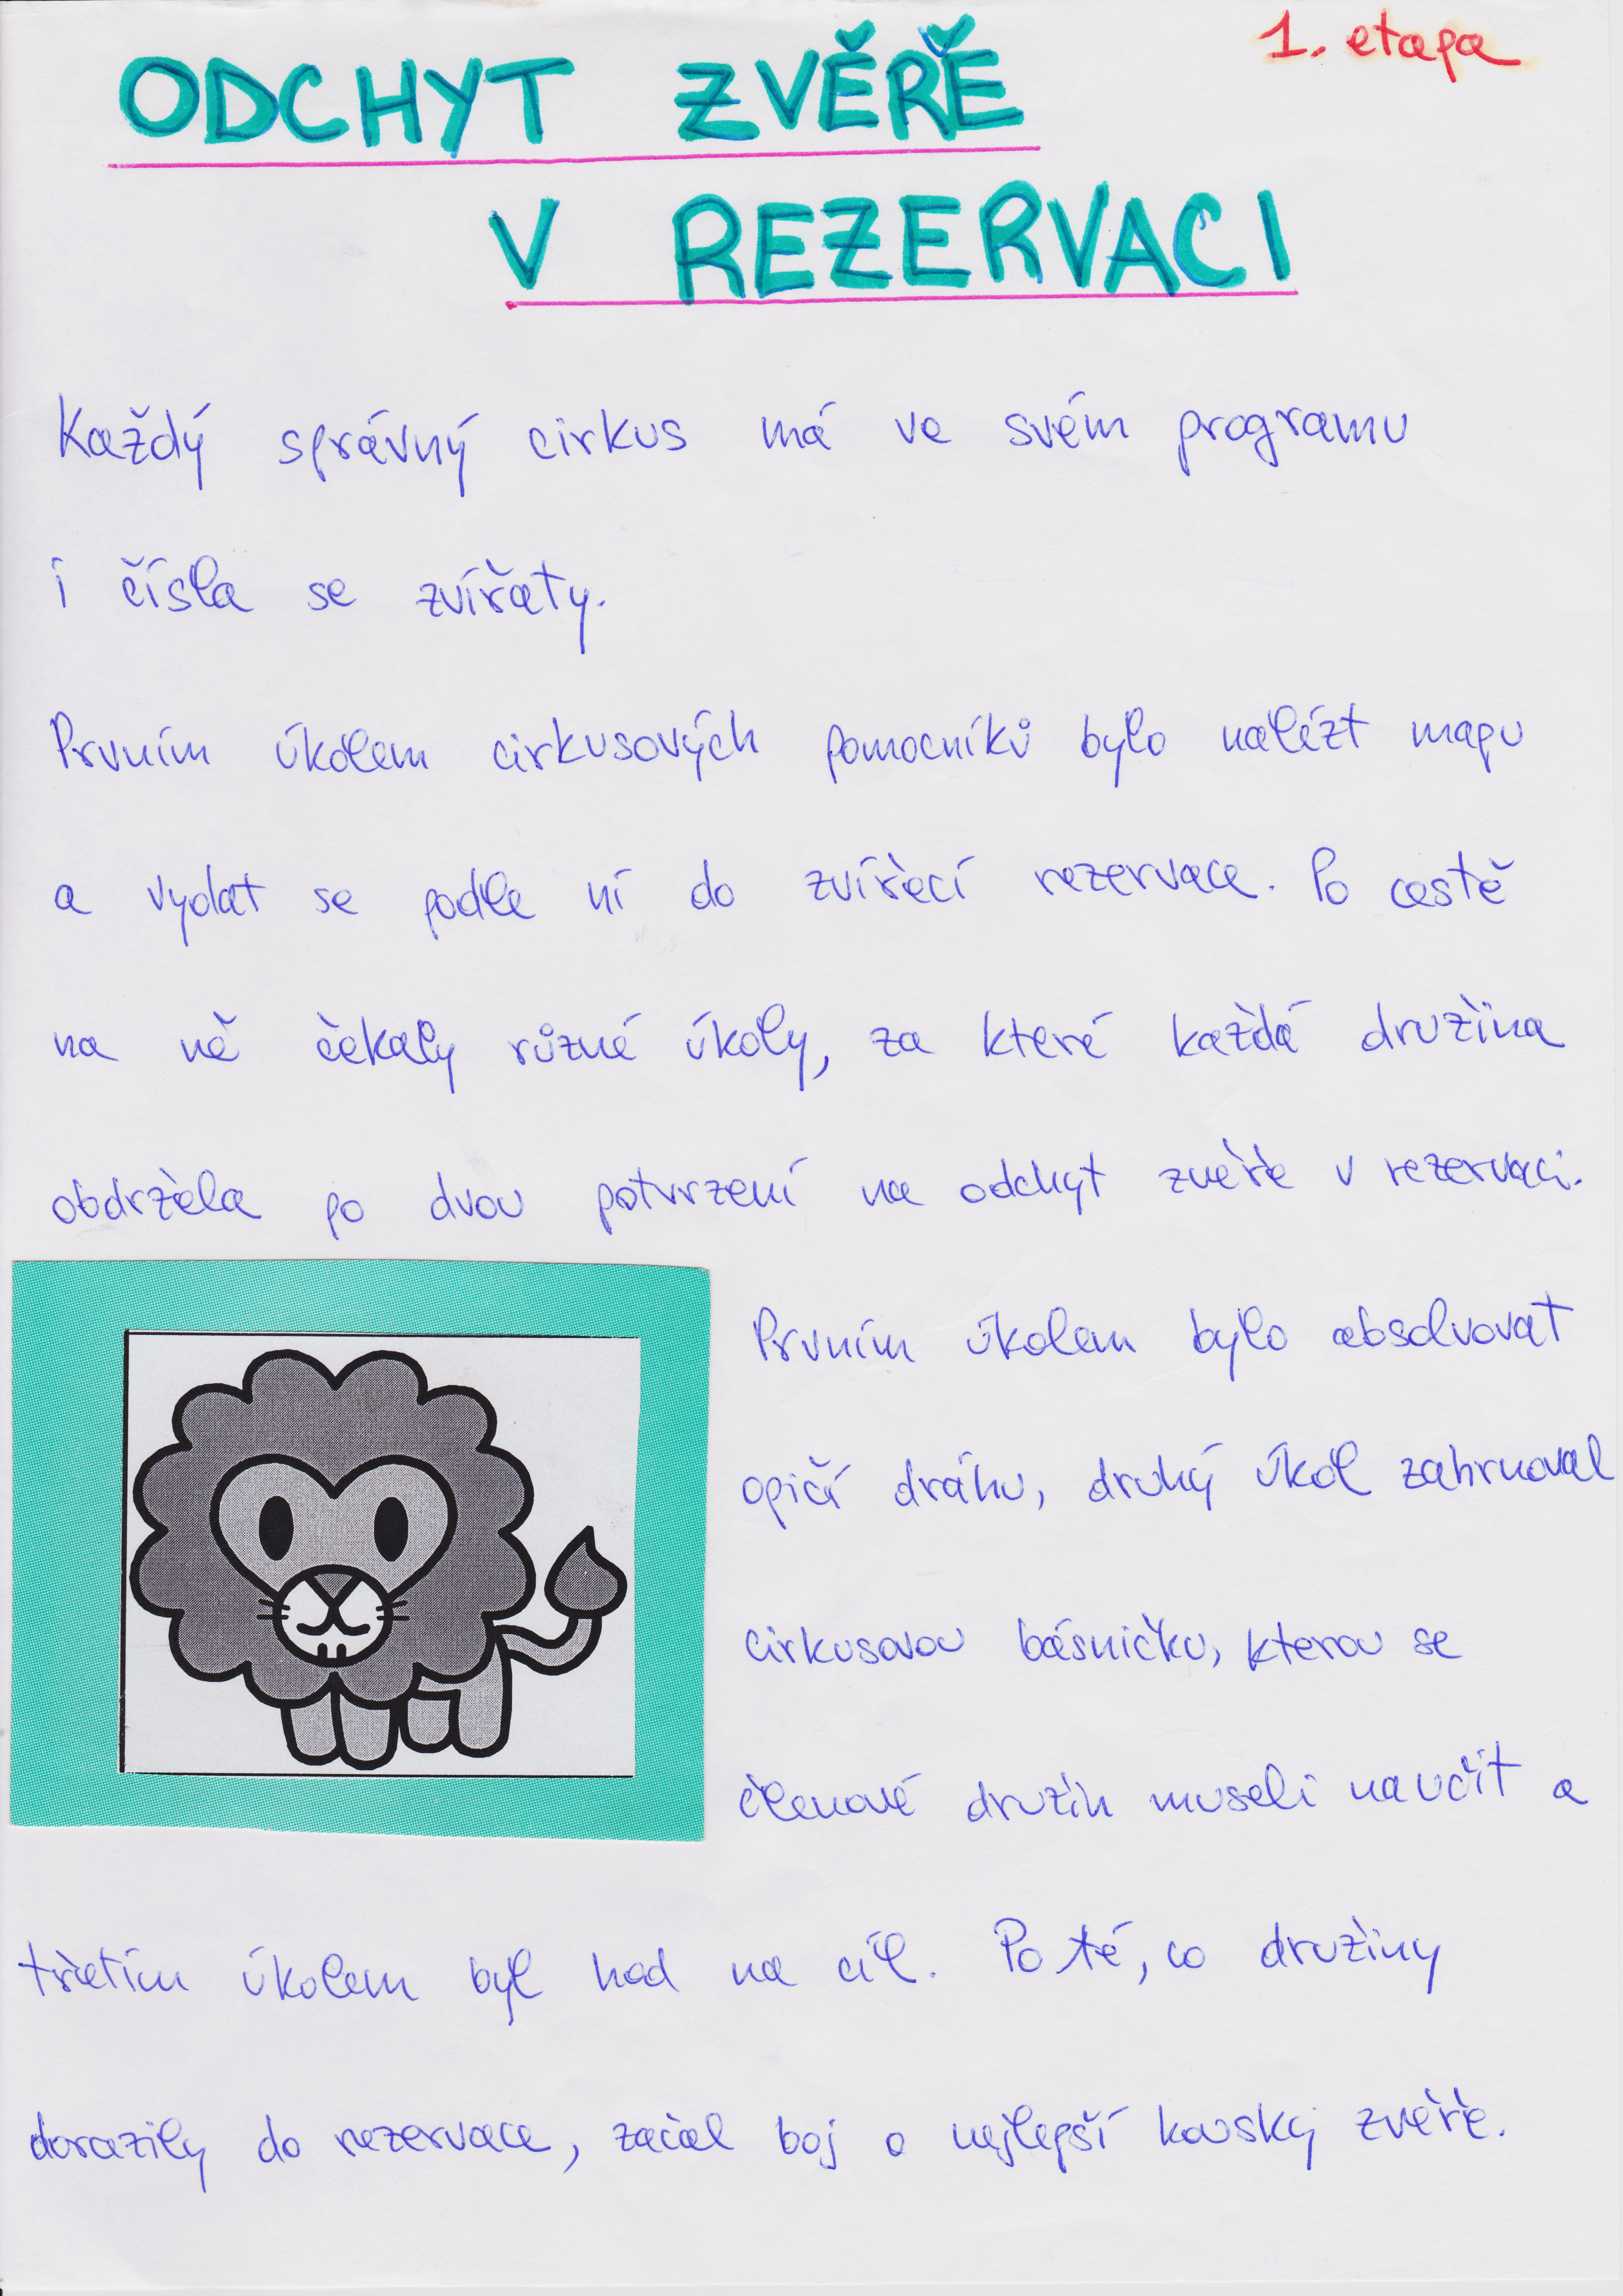 1. etapa
ODCHYT ZVĚŘE
V REZERVACI
Každý správný cirkus má ve svém programu
i čísla se zvířaty.
Prvním úkolem cirkusových pomocníků bylo nalézt mapu
a vydat se podle ní do zvířecí rezervace. Po cestě
na ně čekaly různé úkoly, za které každá družina
obdržela po dvou potvrzení na odchyt zvěře v rezervaci.
Prvním úkolem bylo absolvovat
opičí dráhu, druhý úkol zahrnoval
cirkusovou básničku, kterou se
členové družin museli naučit a
třetím úkolem byl hod na cíl. Po té, co družiny
dorazily do rezervace, začal boj o nejlepší kousky zvěře.